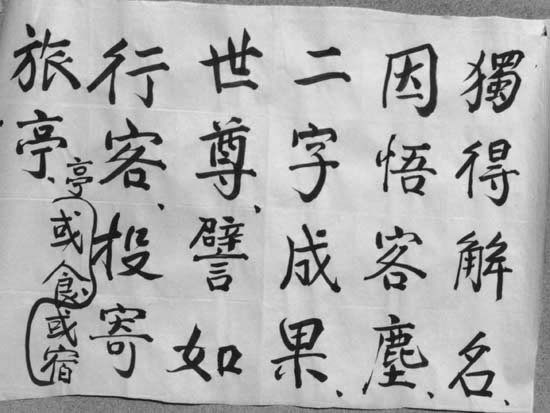 獨得解名、
因悟客塵、
二字成果、
世尊、譬如
行客、投寄
旅亭、
亭或食或宿